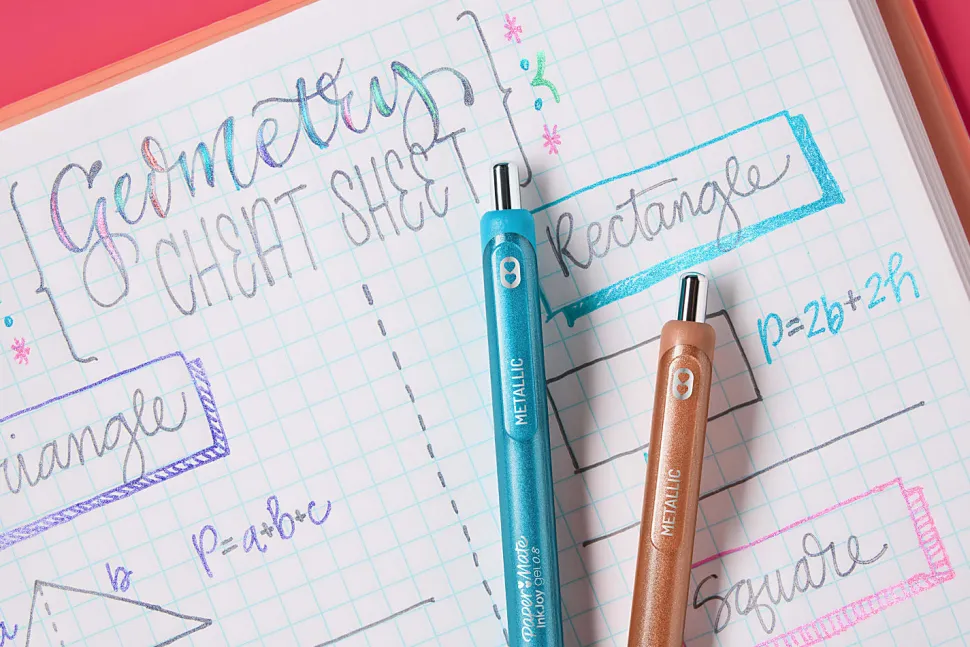 Geometry
CHEAT SHEET
riangle
P=a+b+c
b
a
Rectangle
P=2b+2h
Square
METALLIC
Paper Mate
InkJoy gel 0.8
METALLIC